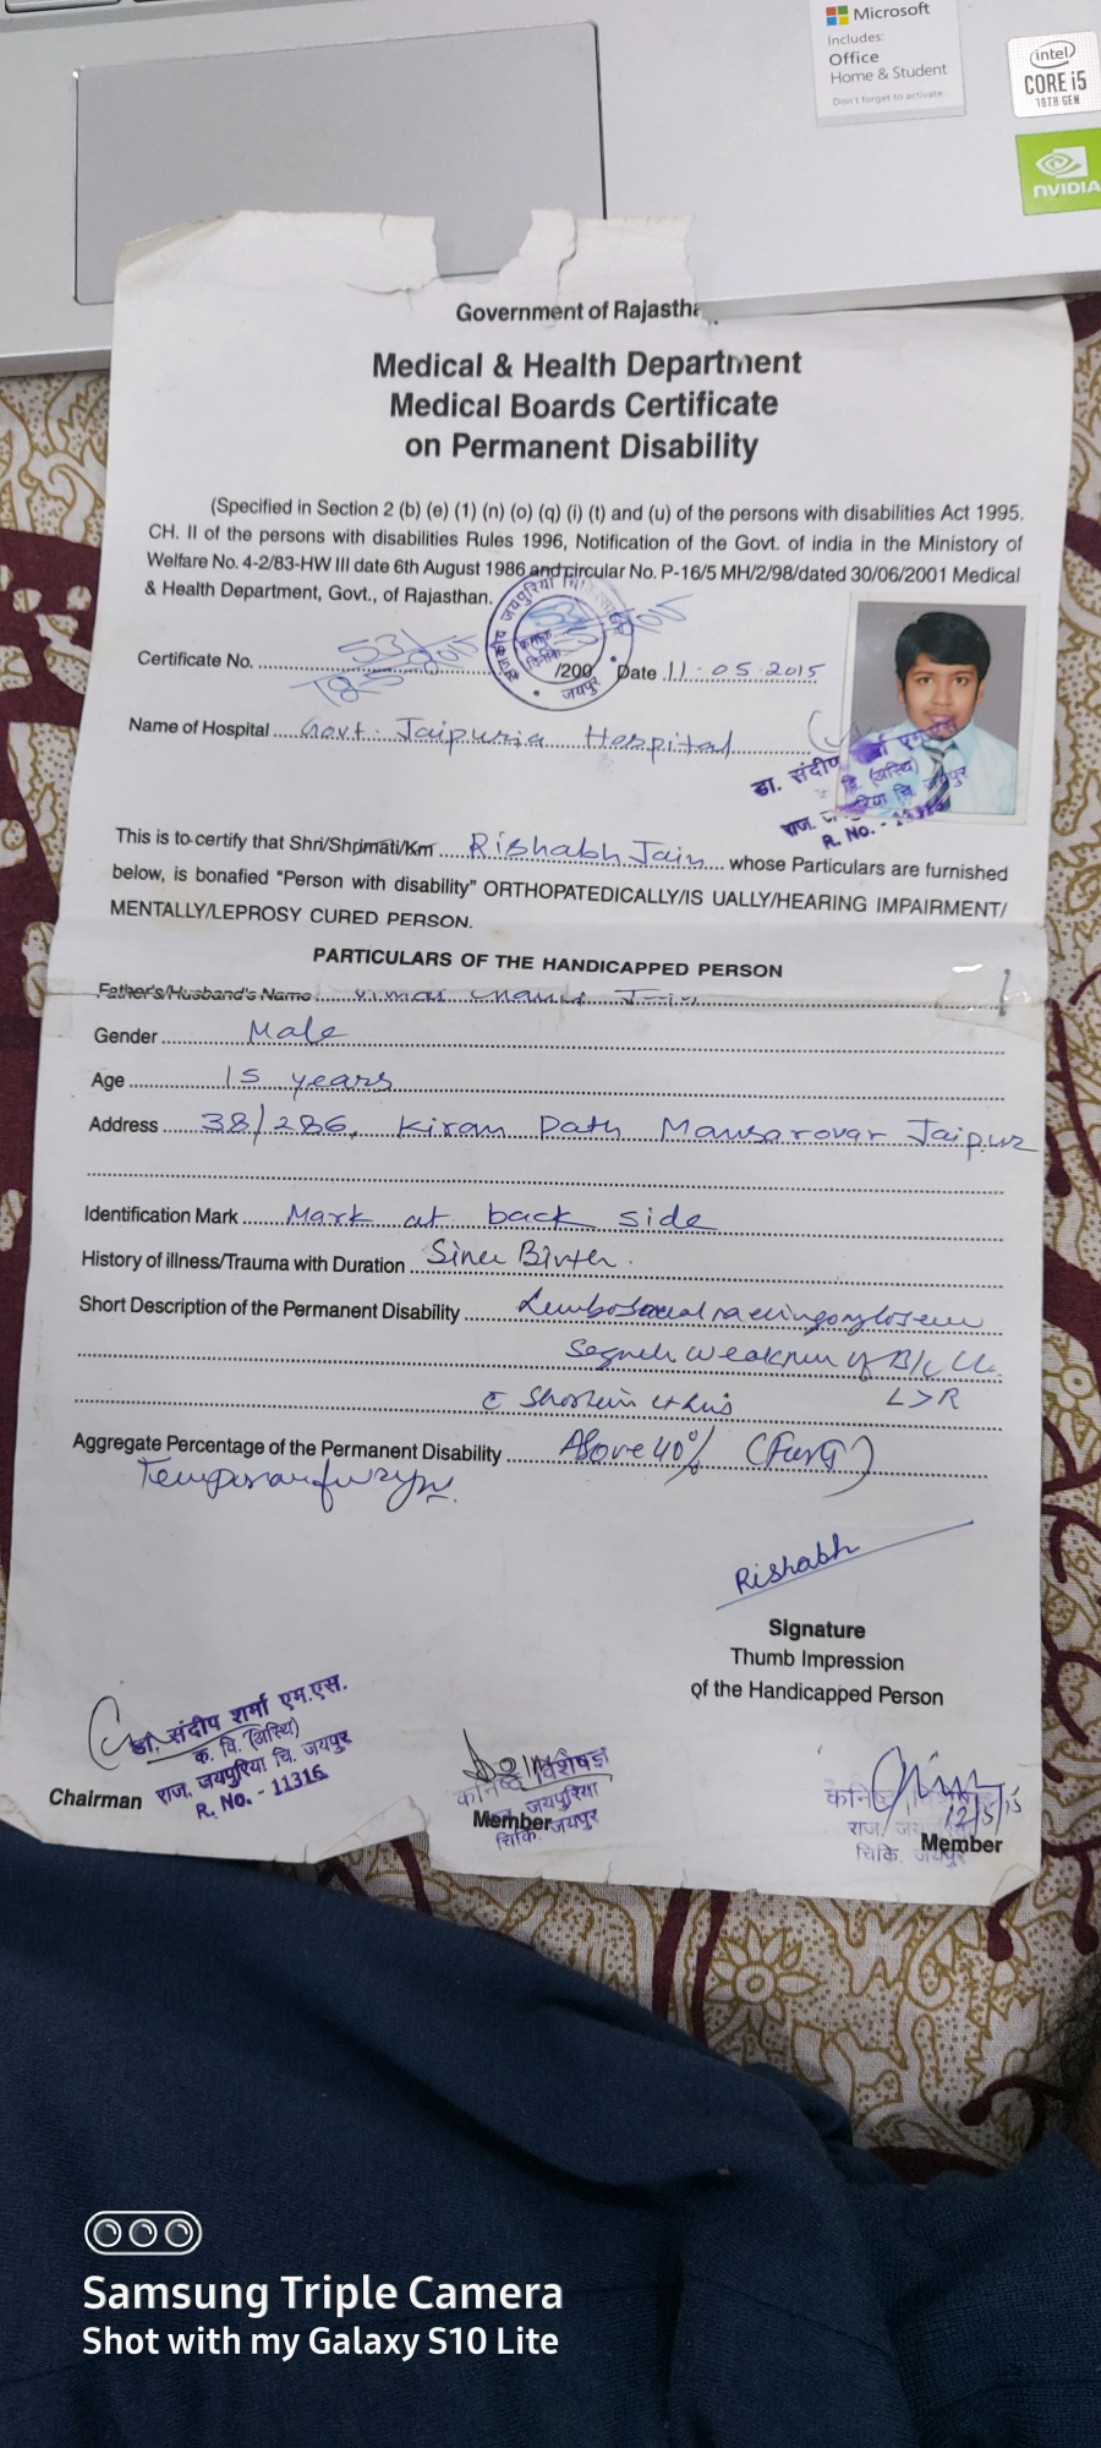 Microsoft
Includes:
Office
Home & Student
Don't forget to activate
intel
CORE i5
10TH GEN
NVIDIA
Government of Rajastha
Medical & Health Department
Medical Boards Certificate
on Permanent Disability
(Specified in Section 2 (b) (e) (1) (n) (o) (q) (i) (t) and (u) of the persons with disabilities Act 1995.
CH. II of the persons with disabilities Rules 1996, Notification of the Govt. of india in the Ministory of
Welfare No. 4-2/83-HW III date 6th August 1986 and circular No. P-16/5 MH/2/98/dated 30/06/2001 Medical
& Health Department, Govt., of Rajasthan.
Certificate No. 53/2015 /200 Date 11.05.2015
जयपुर
Name of Hospital Govt. Jaipuria Hospital
डा. संदीप
(अस्थि)
R. No. - 11316
This is to certify that Shri/Shrimati/Km Rishabh Jain whose Particulars are furnished
below, is bonafied "Person with disability" ORTHOPATEDICALLY/IS UALLY/HEARING IMPAIRMENT/
MENTALLY/LEPROSY CURED PERSON.
PARTICULARS OF THE HANDICAPPED PERSON
Father's/Husband's Name Jain
Gender Male
Age 15 years
Address 38/286, Kiran Path Mansarovar Jaipur
Identification Mark Mark at back side
History of illness/Trauma with Duration Since Birth.
Short Description of the Permanent Disability
weakness of B/L LL
L>R
Aggregate Percentage of the Permanent Disability Above 40%
Rishabh
Signature
Thumb Impression
of the Handicapped Person
डा. संदीप शर्मा एम.एस.
क. वि. (अस्थि)
राज. जयपुरिया चि. जयपुर
R. No. - 11316
Chairman
कनिष्ठ विशेषज्ञ
जयपुरिया
Member
चिकि. जयपुर
कनिष्ठ
12/5/15
राज.
Member
चिकि. जयपुर
Samsung Triple Camera
Shot with my Galaxy S10 Lite